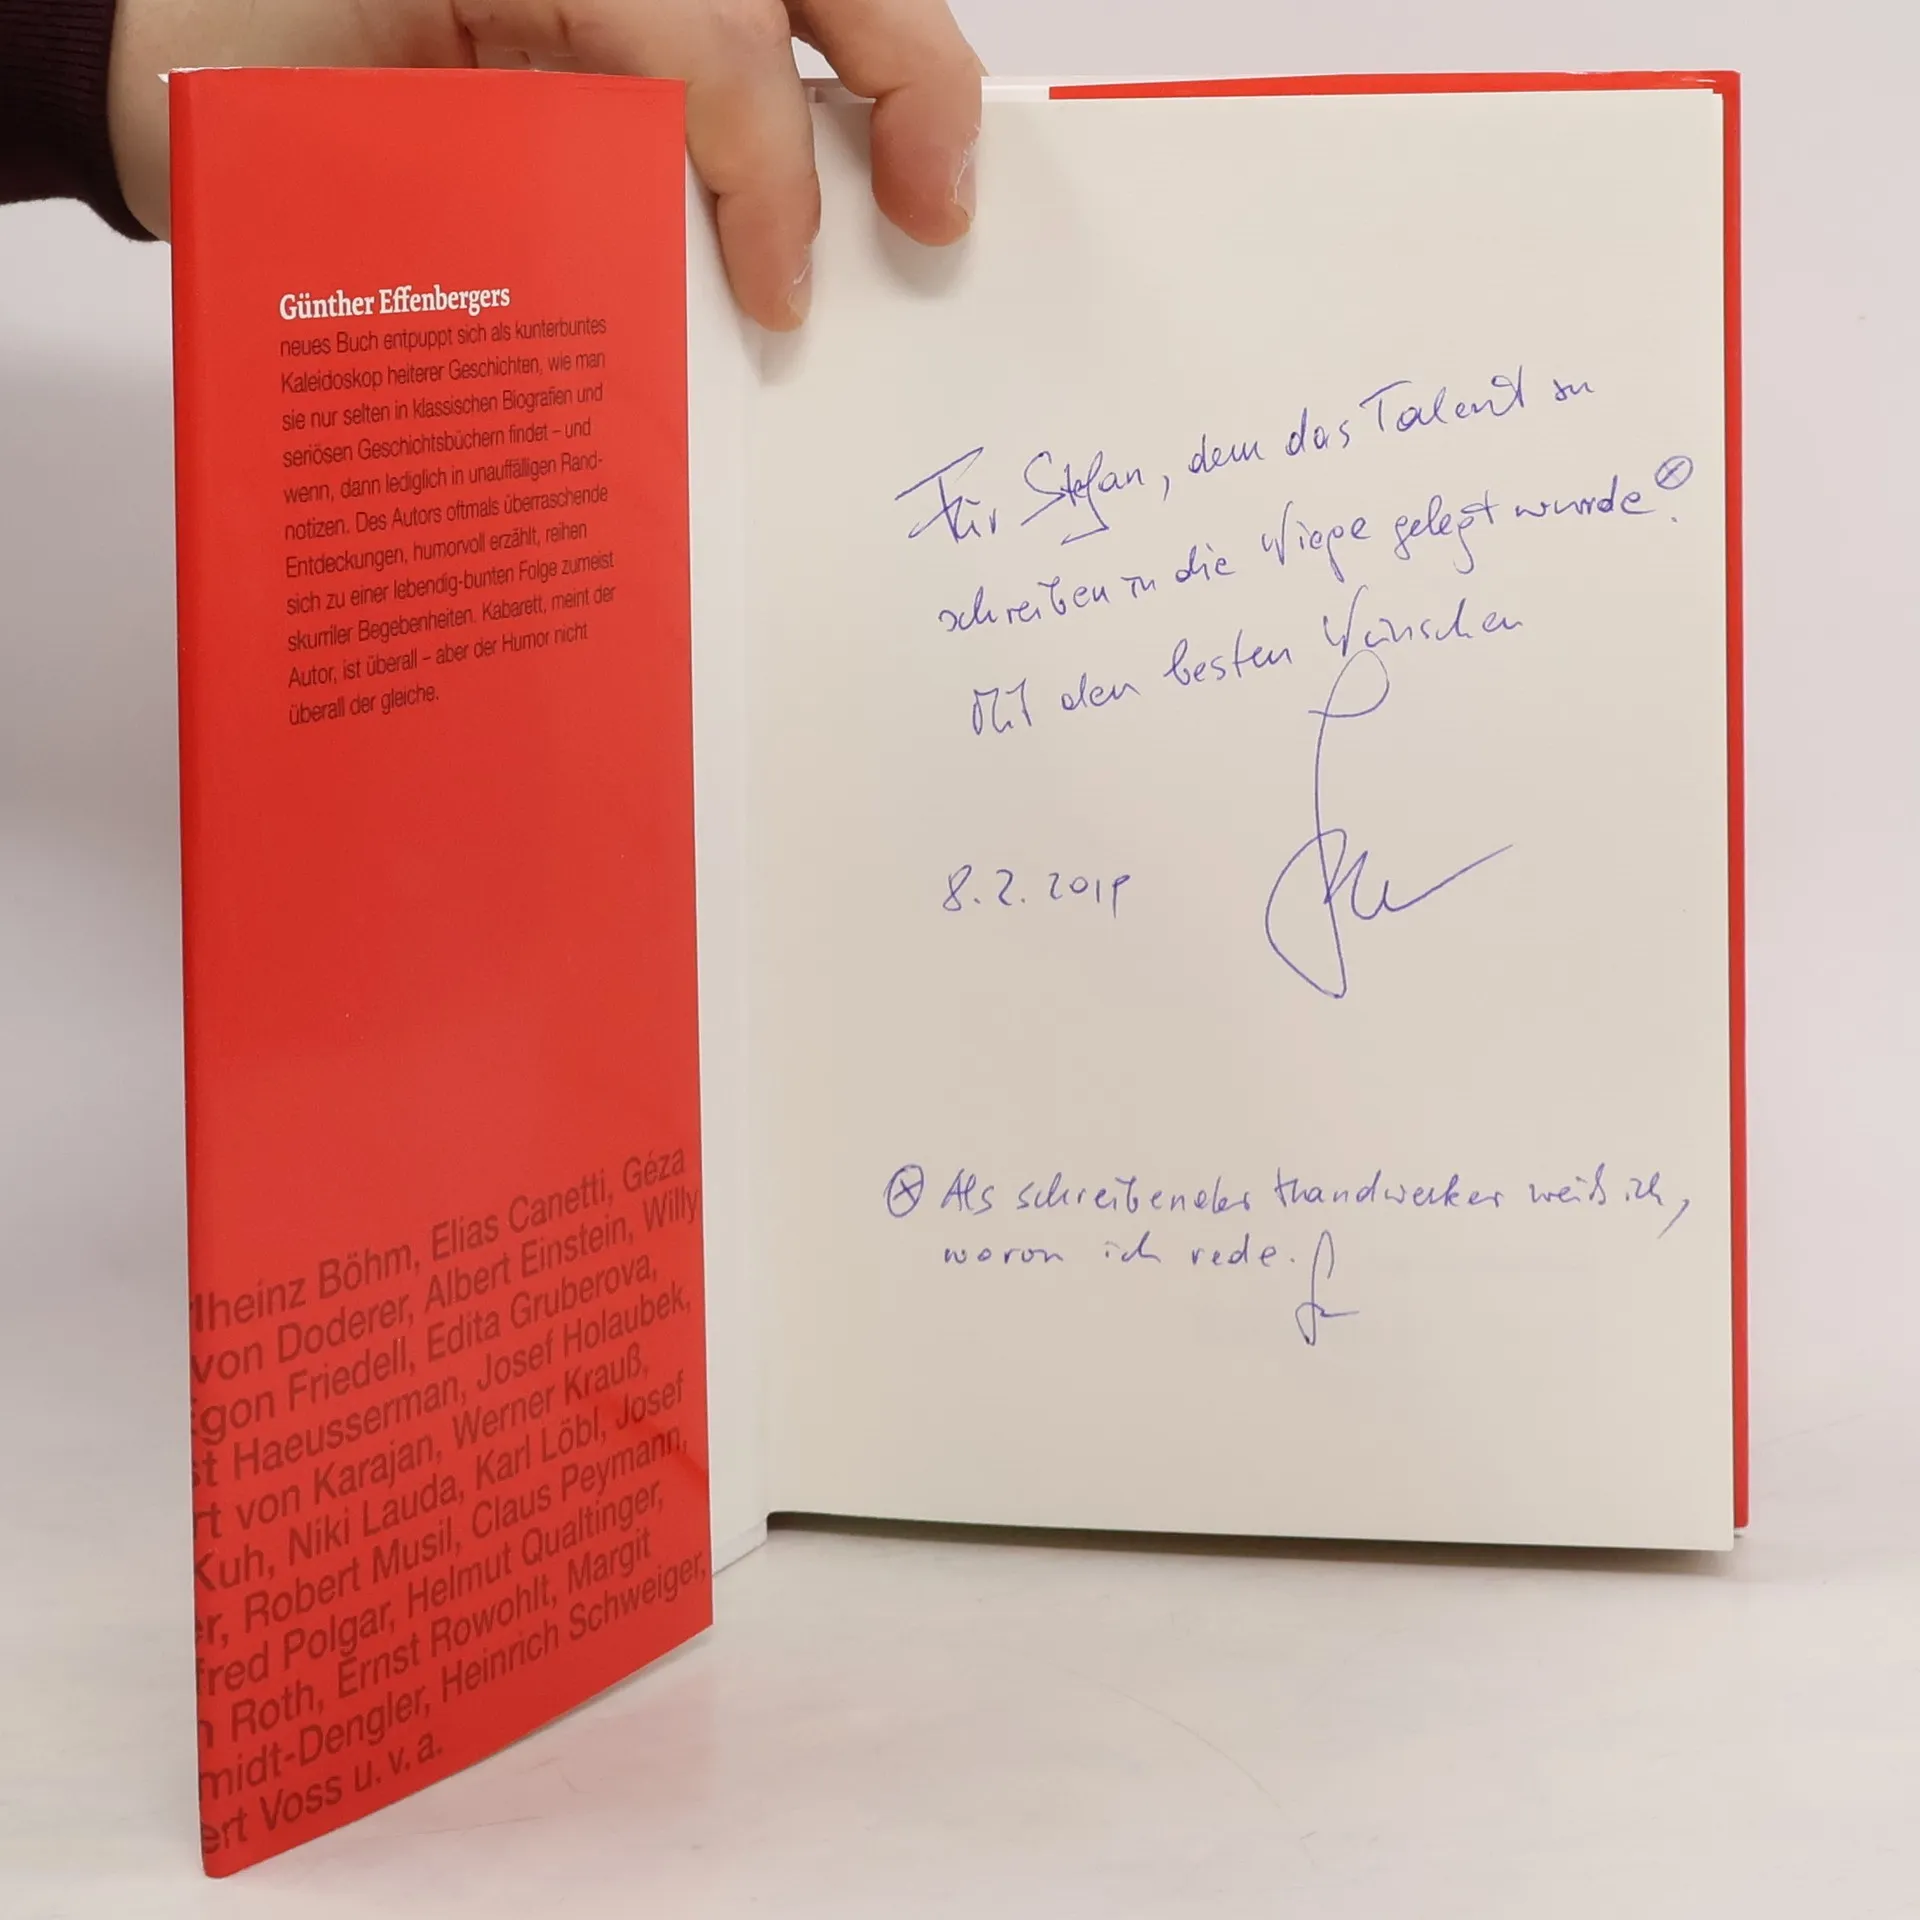 Günther Effenbergers
neues Buch entpuppt sich als kunterbuntes
Kaleidoskop heiterer Geschichten, wie man
sie nur selten in klassischen Biografien und
seriösen Geschichtsbüchern findet – und
wenn, dann lediglich in unauffälligen Rand-
notizen. Des Autors oftmals überraschende
Entdeckungen, humorvoll erzählt, reihen
sich zu einer lebendig-bunten Folge zumeist
skurriler Begebenheiten. Kabarett, meint der
Autor, ist überall – aber der Humor nicht
überall der gleiche.
lheinz Böhm, Elias Canetti, Géza
von Doderer, Albert Einstein, Willy
gon Friedell, Edita Gruberova,
st Haeusserman, Josef Holaubek,
rt von Karajan, Werner Krauß,
Kuh, Niki Lauda, Karl Löbl, Josef
er, Robert Musil, Claus Peymann,
fred Polgar, Helmut Qualtinger,
h Roth, Ernst Rowohlt, Margit
midt-Dengler, Heinrich Schweiger,
ert Voss u. v. a.
Für Stefan, dem das Talent zu
schreiben in die Wiege gelegt wurde. ⊗
Mit den besten Wünschen
8.2.2019
⊗ Als schreibender Handwerker weiß ich,
wovon ich rede.